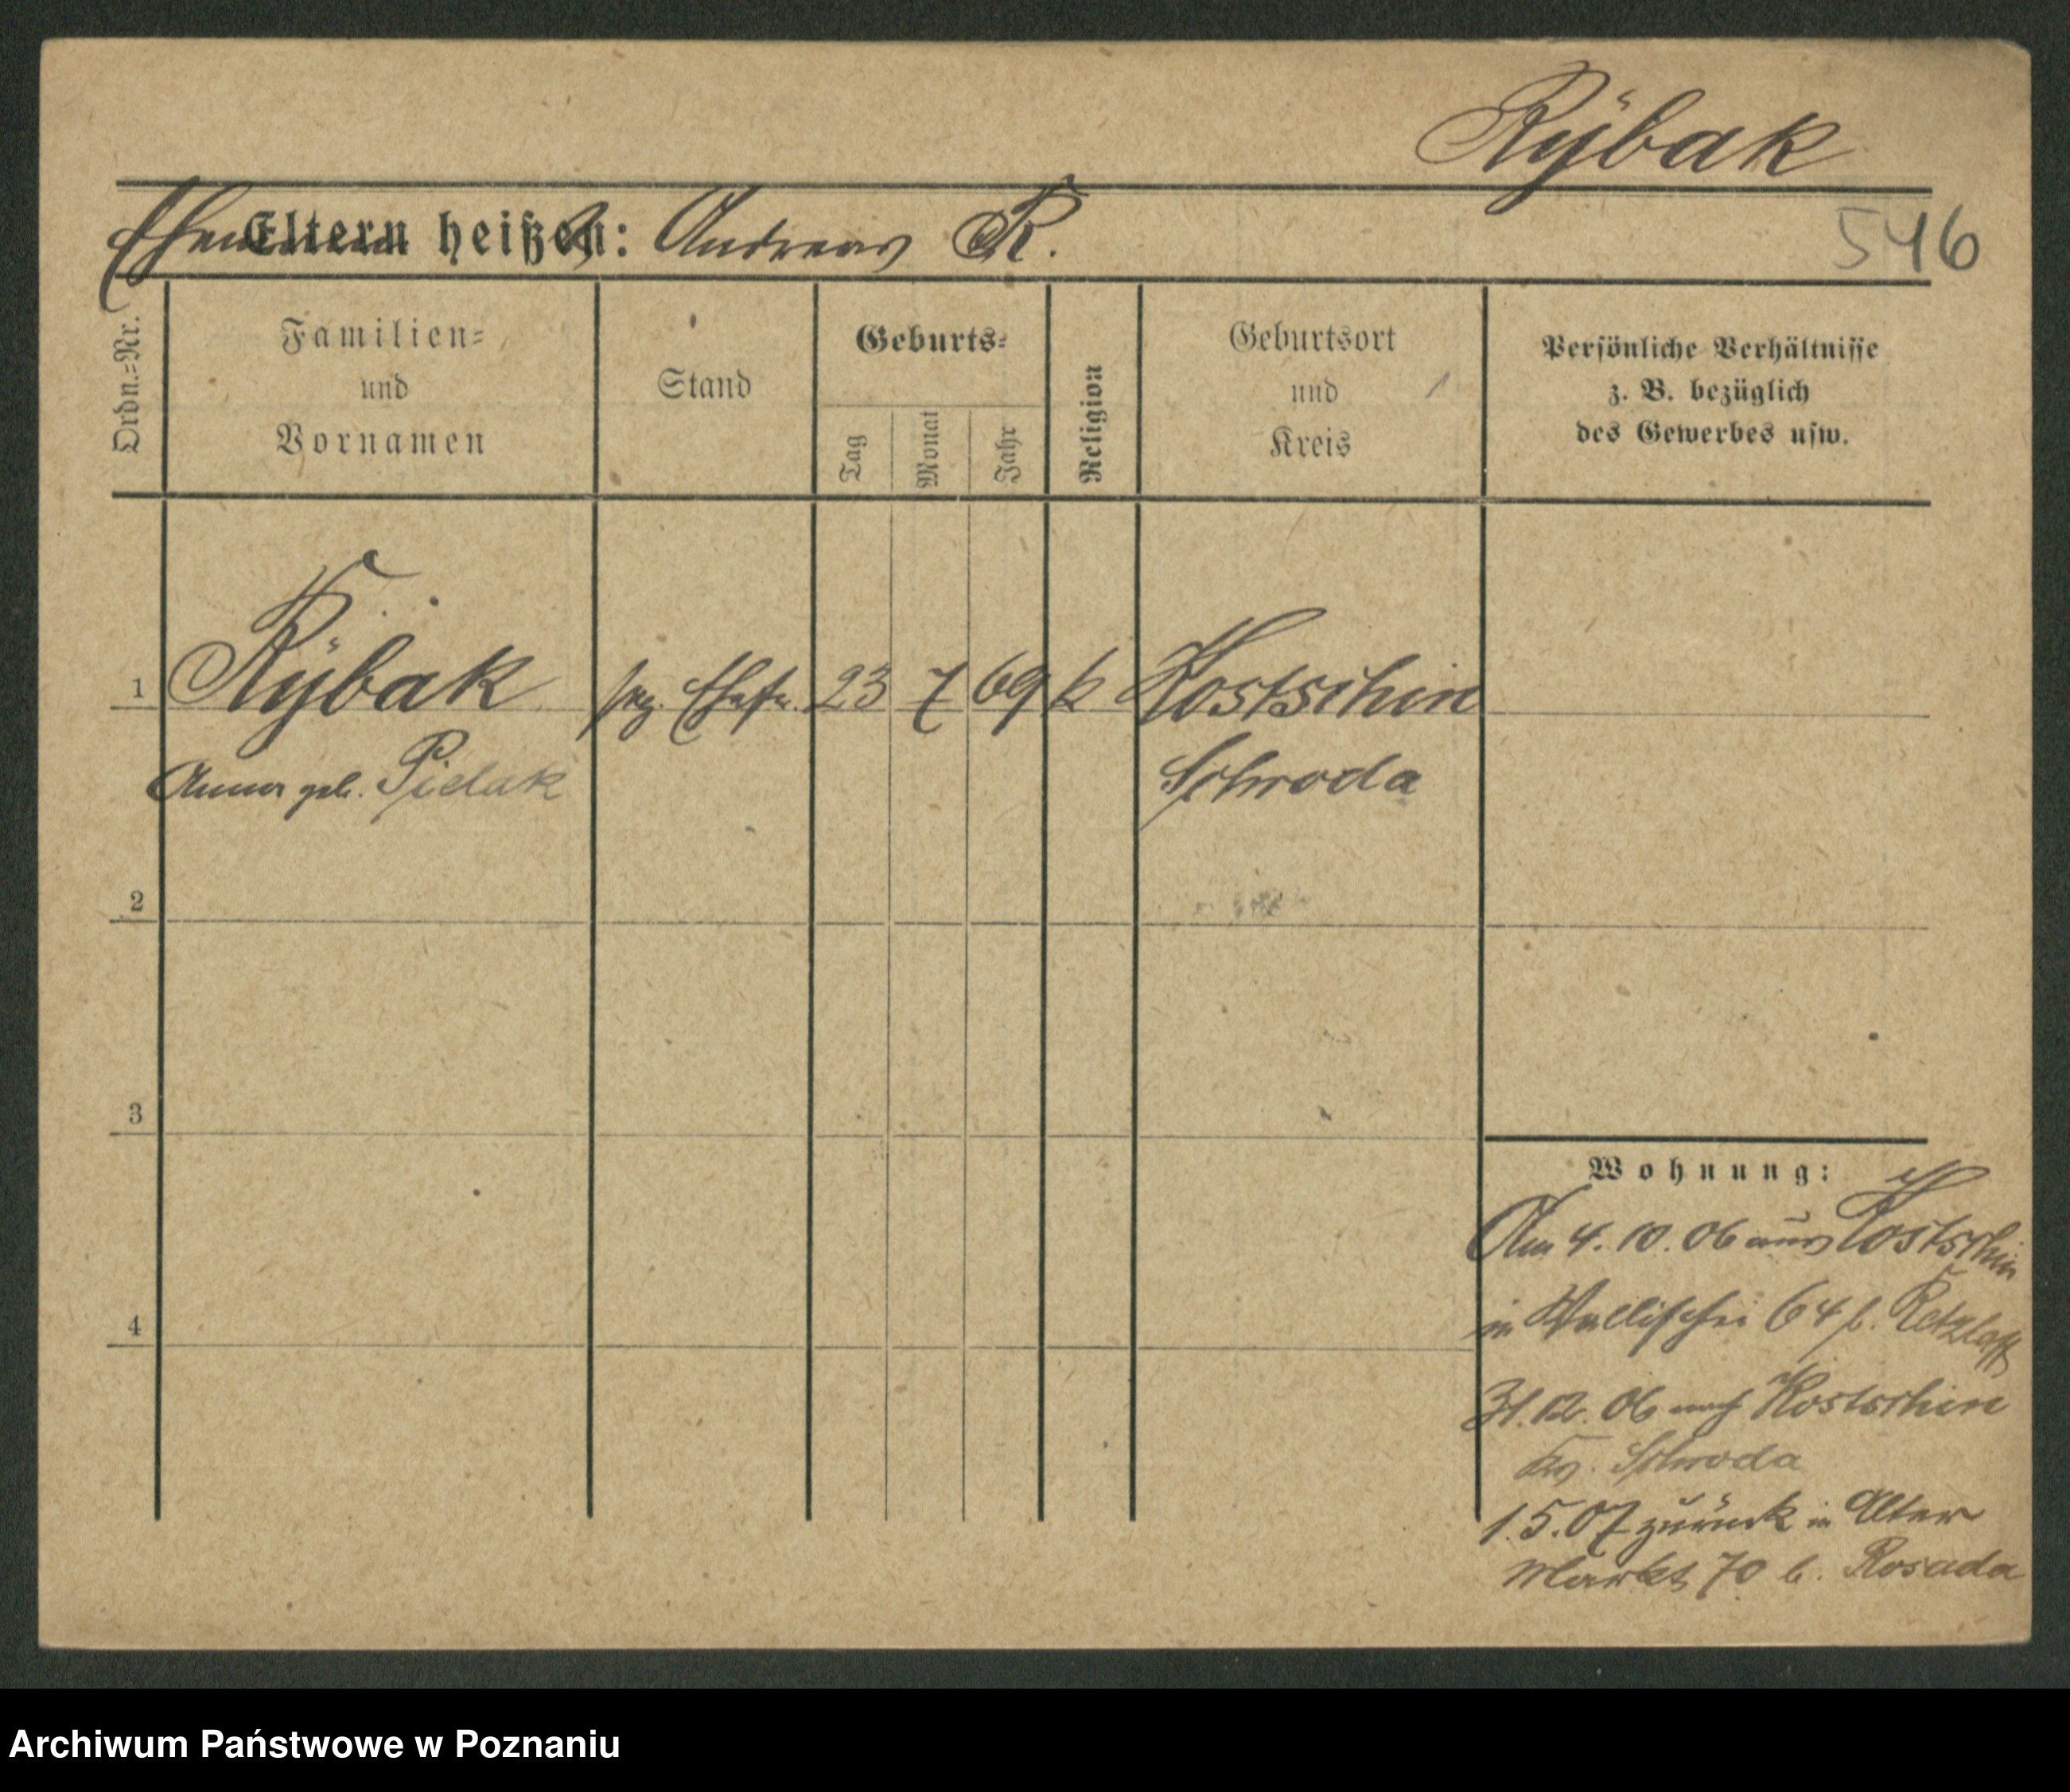 Rÿbak
Ehemann Eltern heißen: Andreas R.
546
Ordn.=Nr.
Familien=
und
Vornamen
Stand
Geburts=
Tag
Monat
Jahr
Religion
Geburtsort
und
Kreis
Persönliche Verhältnisse
z. B. bezüglich
des Gewerbes usw.
1 Rÿbak Ehefr. 23 7 69 k Kostschin
Anna geb. Pielak Schroda
2
3
4
Wohnung:
Am 4. 10. 06 aus Kostschin
in Wallischei 64 b. Retzlaff
31.12. 06 nach Kostschin
Kr. Schroda
1.5.07 zurück in Alter
Markt 70 b. Rosada
Archiwum Państwowe w Poznaniu